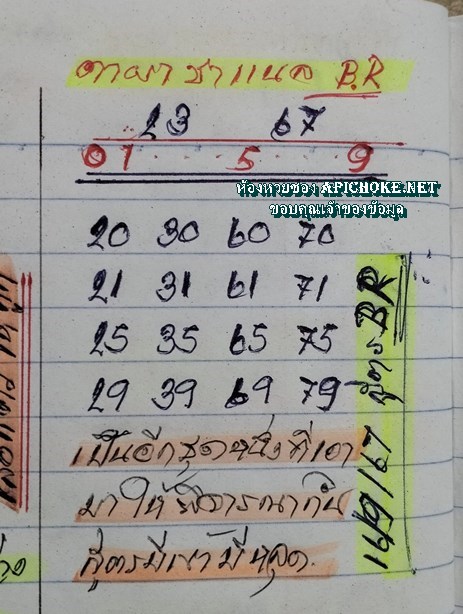 ตาผาชาแนล B.R
23 67
01 . . . 5 . . . 9
ห้องหวยของ APICHOKE.NET
ขอบคุณเจ้าของข้อมูล
20 30 60 70
21 31 61 71
25 35 65 75
29 39 69 79
เป็นอีกชุดหนึ่งที่เอา
มาให้พิจารณากัน
สูตรมีเข้ามีหลุด.
16/9/67 สูตร BR